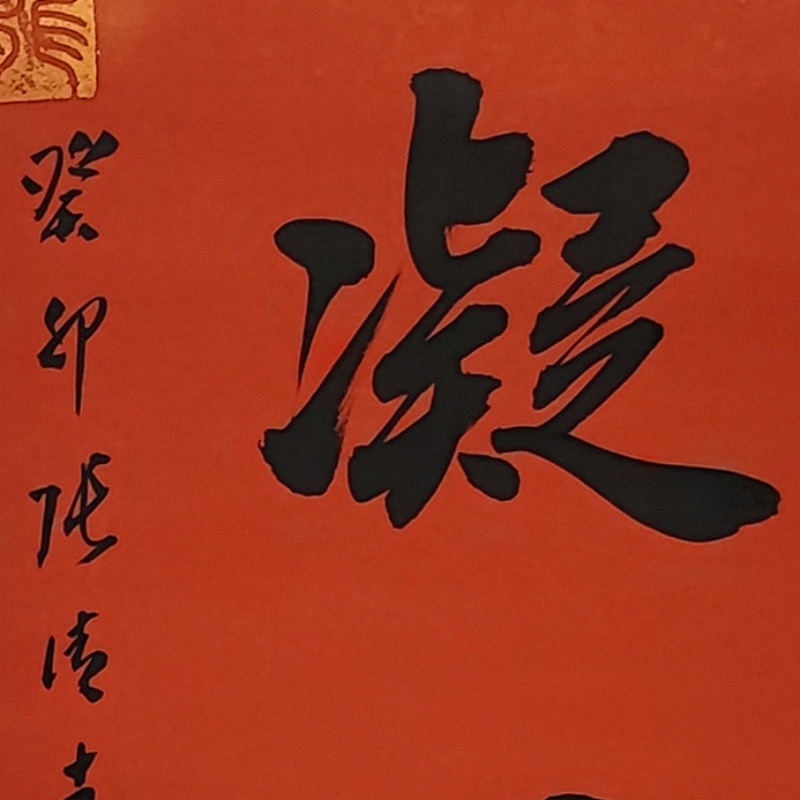 凝
癸卯張清